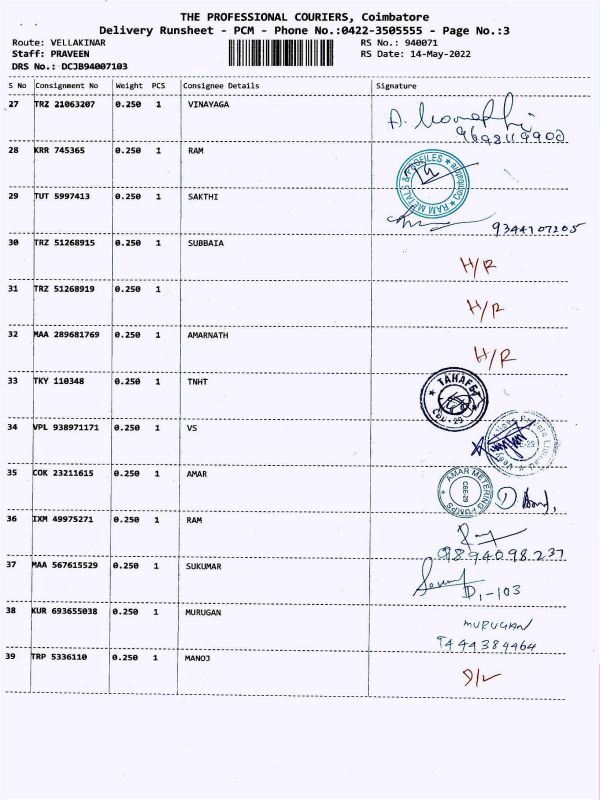 THE PROFESSIONAL COURIERS, Coimbatore
Delivery Runsheet - PCM - Phone No.:0422-3505555 - Page No.:3
Route: VELLAKINAR
RS No.: 940071
Staff: PRAVEEN
RS Date: 14-May-2022
DRS No.: DCJB94007103
S No Consignment No Weight PCS Consignee Details Signature
27 TRZ 21063207 0.250 1 VINAYAGA
9698119900
28 KRR 745365 0.250 1 RAM
RAM METALS & PROFILES ★ Coimbatore ★
29 TUT 5997413 0.250 1 SAKTHI
9344107205
30 TRZ 51268915 0.250 1 SUBBAIA
H/R
31 TRZ 51268919 0.250 1
H/R
32 MAA 289681769 0.250 1 AMARNATH
H/R
33 TKY 110348 0.250 1 TNHT
★ TAHAFET ★ CBE-29
34 VPL 938971171 0.250 1 VS
35 COK 23211615 0.250 1 AMAR
AMAR METERING PUMPS ★ CBE-29
36 IXM 49975271 0.250 1 RAM
9894098237
37 MAA 567615529 0.250 1 SUKUMAR
D1-103
38 KUR 693655038 0.250 1 MURUGAN
MURUGAN
9444384464
39 TRP 5336110 0.250 1 MANOJ
D/L